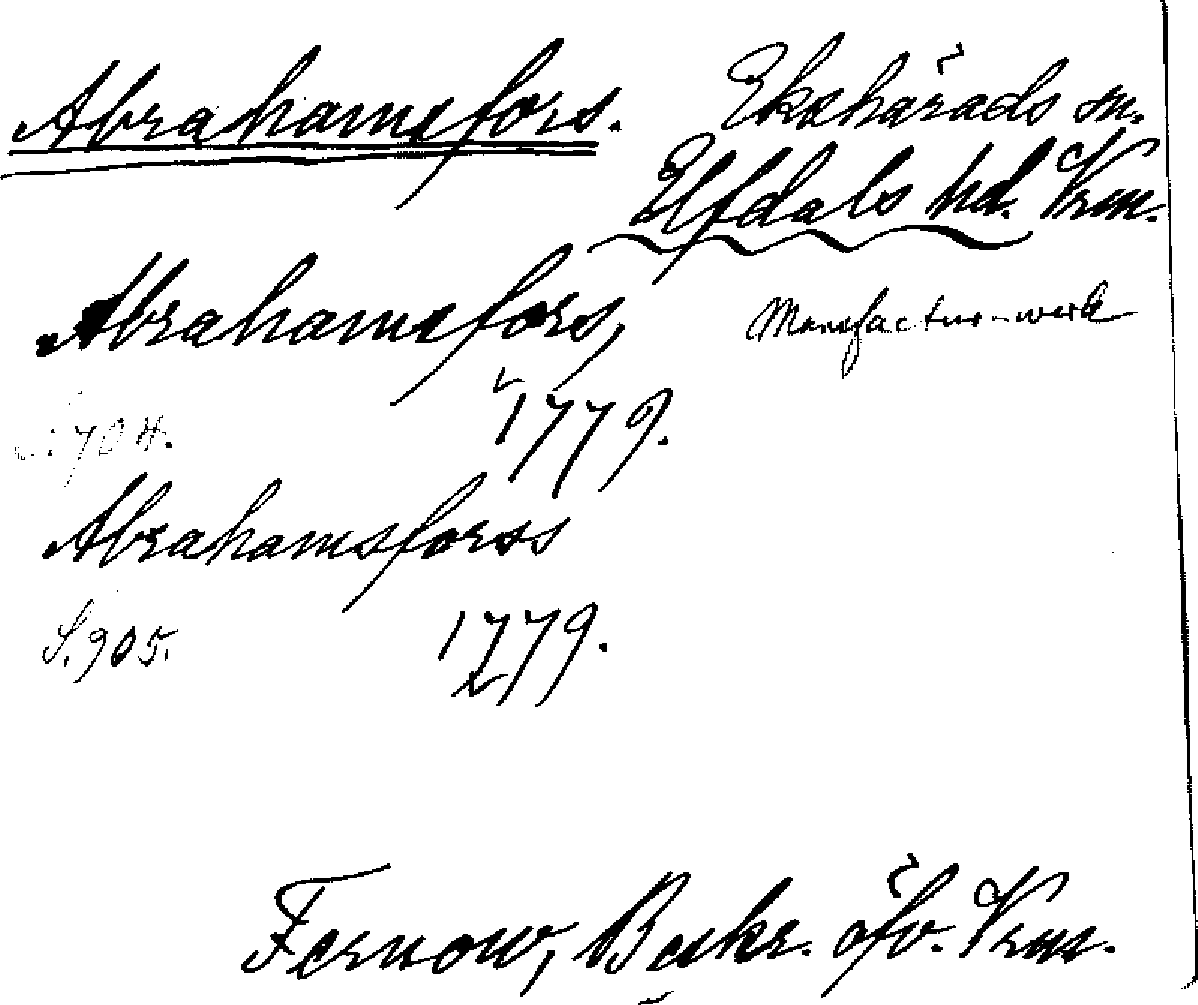 Abrahamsfors. Ekshärads sn.
Elfdals hd. Vrm.
Abrahamsfors, Manufactur-werk
1779.
Abrahamsforss
S. 905. 1779.
Fernow, Beskr. öfv. Vrm.